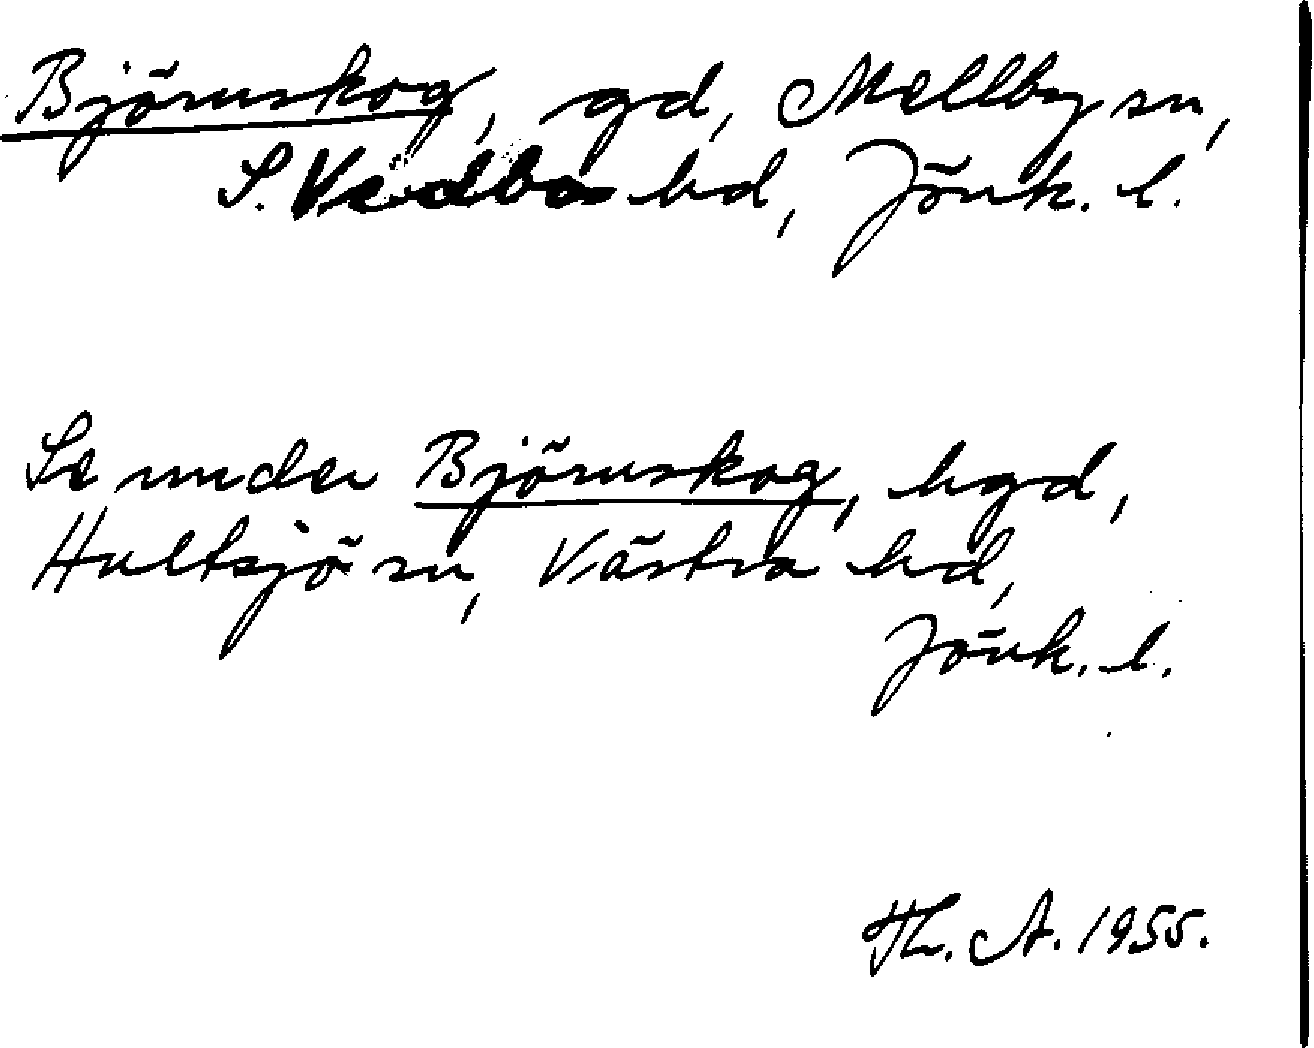 Björnskog, gd, Mellby sn,
S. Vedbo hd, Jönk. l.
Se under Björnskog, hgd,
Hultsjö sn, Västra hd,
Jönk. l.
Th. A. 1955.